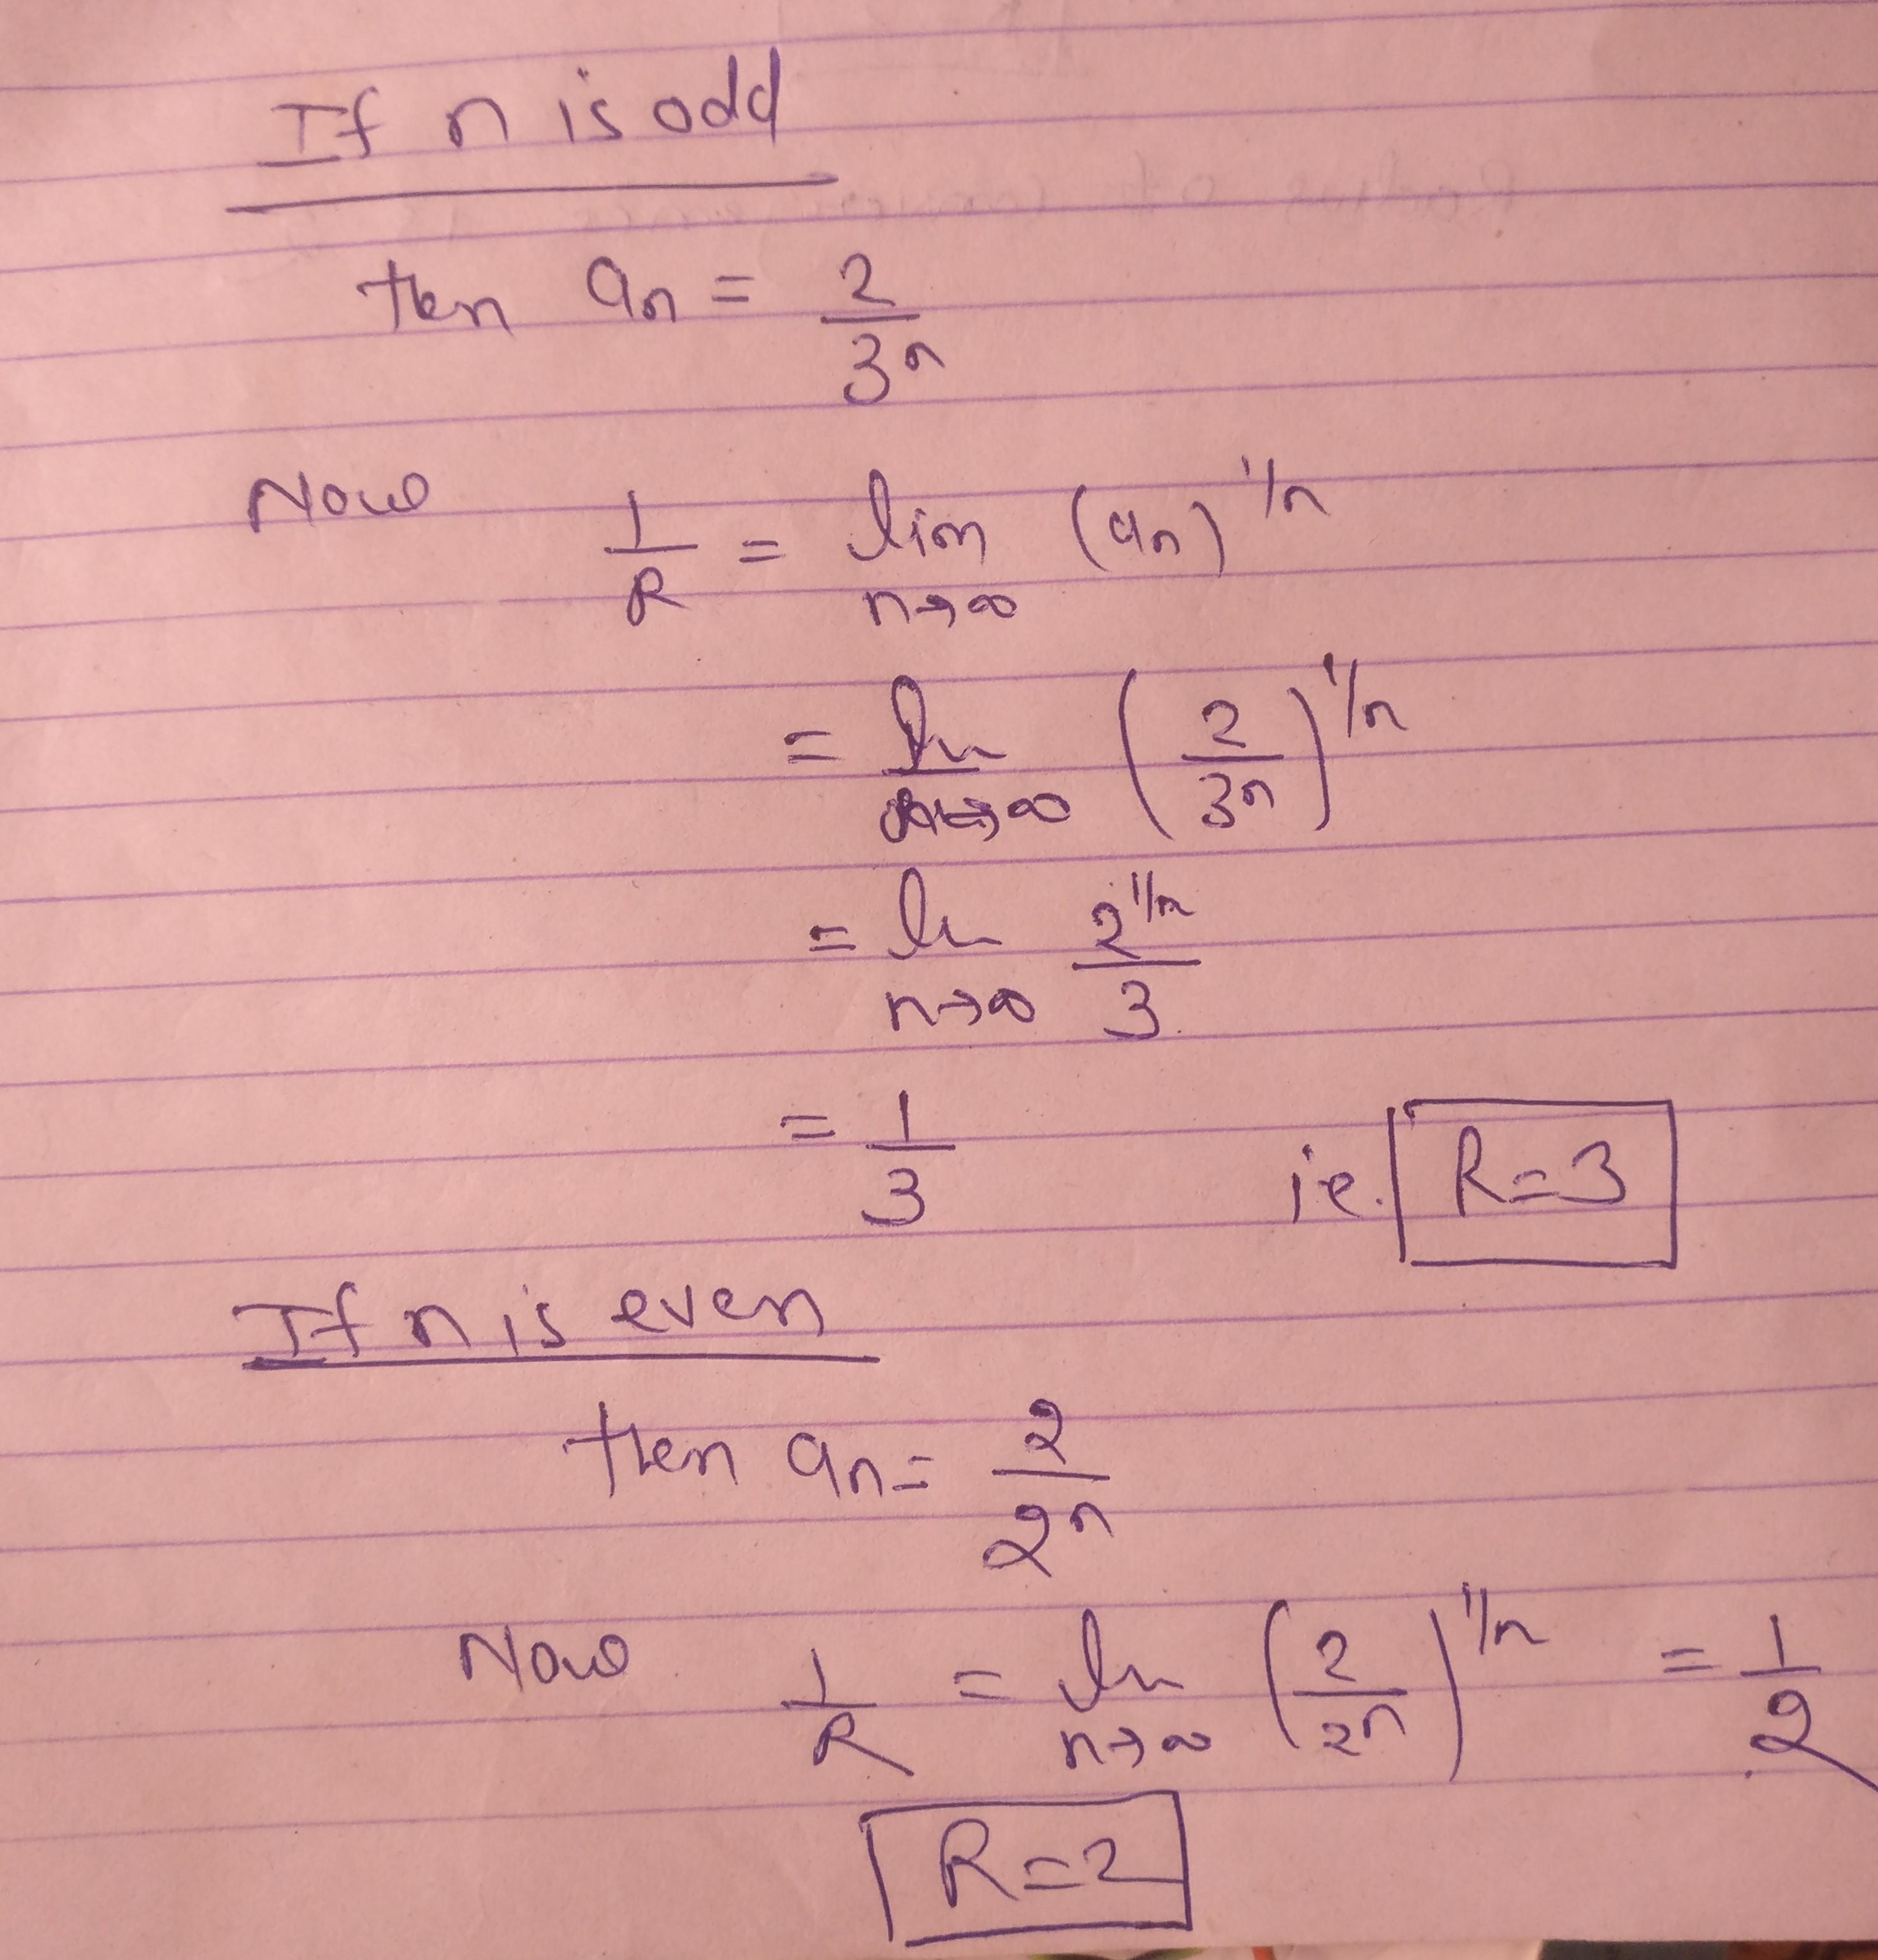 If n is odd
then an = 2/3^n
Now 1/R = lim n→∞ (an)^1/n
= lim n→∞ (2/3^n)^1/n
= lim n→∞ 2^1/n / 3
= 1/3 i.e. R=3
If n is even
then an = 2/2^n
Now 1/R = lim n→∞ (2/2^n)^1/n = 1/2
R=2